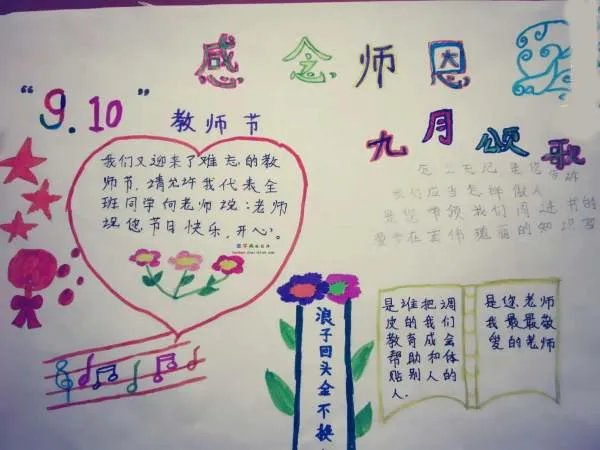 感念师恩
“9.10”
教师节
九月颂歌
我们又迎来了难忘的教
师节,请允许我代表全
班同学向老师说:老师
祝您节日快乐,开心。
我们应当怎样做人
是您带领我们
的知识
浪子回头金不换
是谁把调
皮的我们
教育成会
帮助和体
贴别人的
人.
是您老师
我最最敬
爱的老师